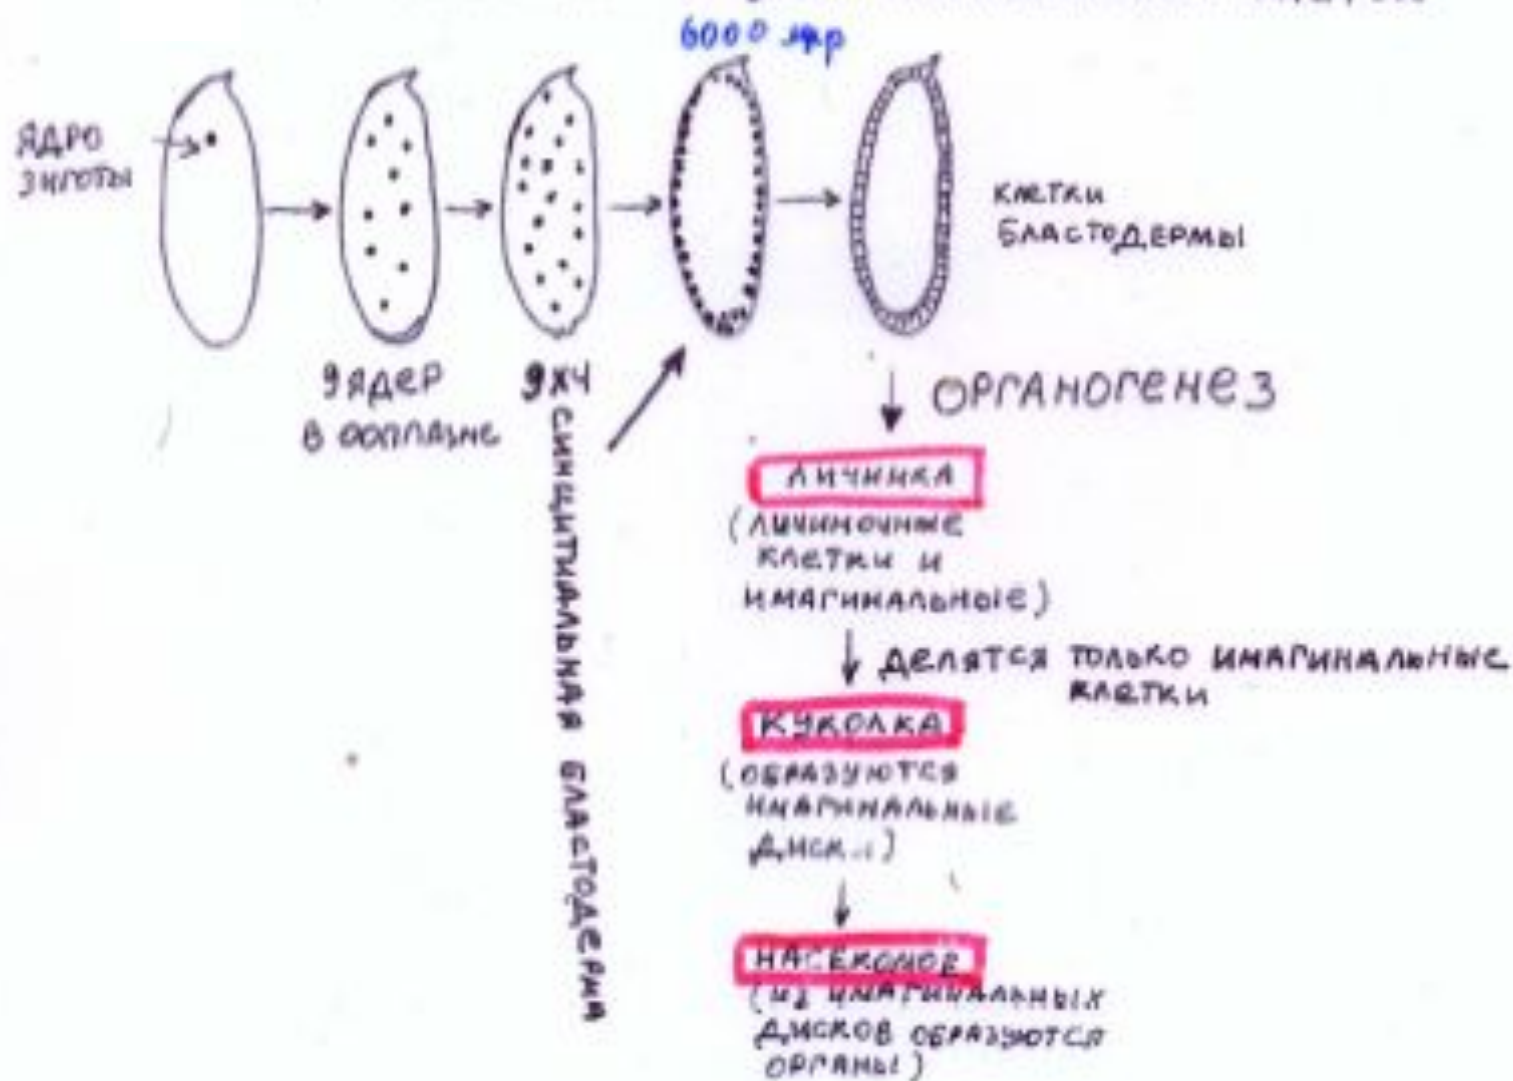 6000 ядр
ЯДРО
ЗИГОТЫ
КЛЕТКИ
БЛАСТОДЕРМЫ
9 ЯДЕР
В ООПЛАЗМЕ
9×4
СИНЦИТИАЛЬНАЯ БЛАСТОДЕРМА
ОРГАНОГЕНЕЗ
ЛИЧИНКА
(ЛИЧИНОЧНЫЕ
КЛЕТКИ И
ИМАГИНАЛЬНЫЕ)
ДЕЛЯТСЯ ТОЛЬКО ИМАГИНАЛЬНЫЕ
КЛЕТКИ
КУКОЛКА
(ОБРАЗУЮТСЯ
ИМАГИНАЛЬНЫЕ
НАСЕКОМОЕ
(ИЗ ИМАГИНАЛЬНЫХ
ДИСКОВ ОБРАЗУЮТСЯ
ОРГАНЫ)